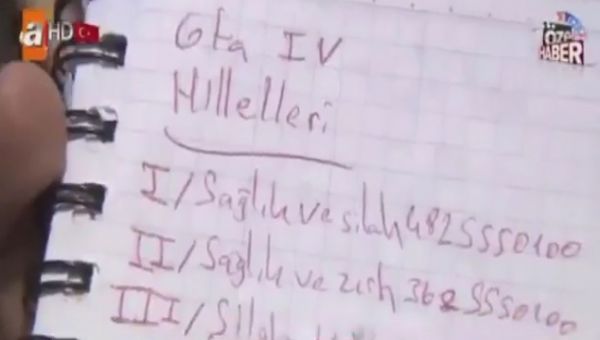 a HD
ÖZEL
HABER
Gta IV
Hıllelleri
I/Sağlık ve silah 4825550100
II/Sağlık ve zırh 3625550100
III/Sila